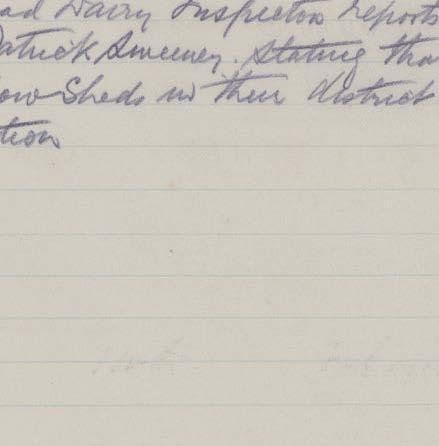 ad Dairy Inspector reports
Patrick Sweeney. Stating tha
ow Sheds in their district
tion